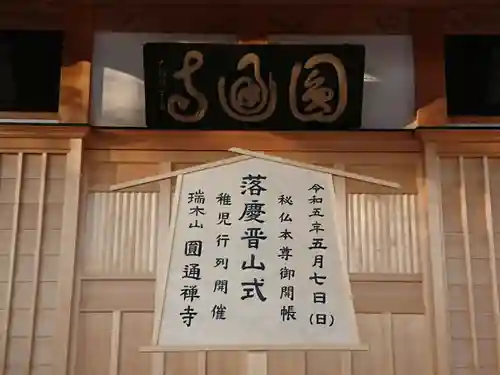 圓通寺
令和五年五月七日(日)
秘仏本尊御開帳
落慶晋山式
稚児行列開催
瑞木山 圓通禅寺